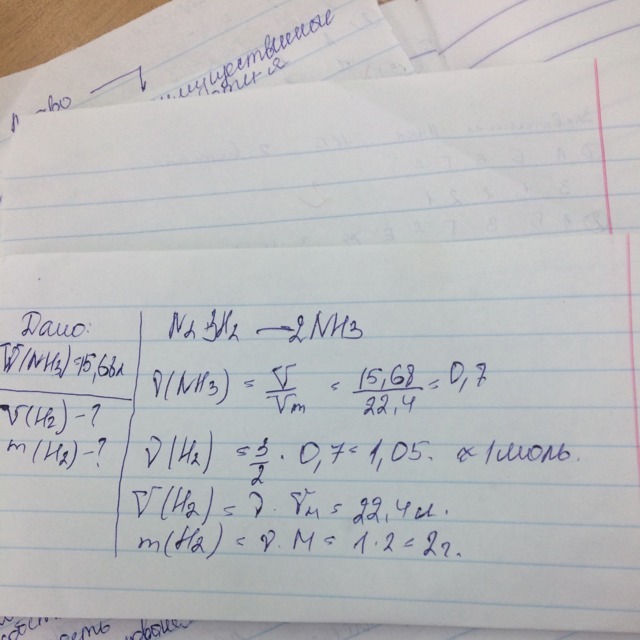 имущественные
Дано:
V(NH3)=15,68л
V(H2)-?
m(H2)-?
N2 3H2 — 2NH3
ν(NH3) = V/Vm = 15,68/22,4 = 0,7
ν(H2) = 3/2 · 0,7 = 1,05. ≈ 1 моль.
V(H2) = ν · Vм = 22,4 л.
m(H2) = ν · M = 1 · 2 = 2г.